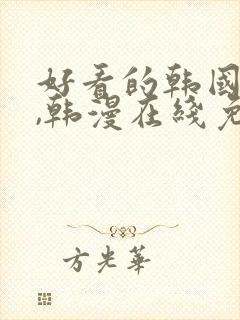 好看的韩国
,韩漫在线免
方光華